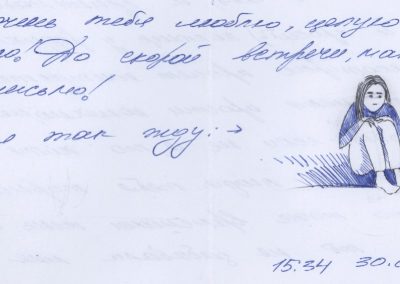 очень тебя люблю, целую
о! До скорой встречи,
письмо!
так жду: →
15.34 30.0